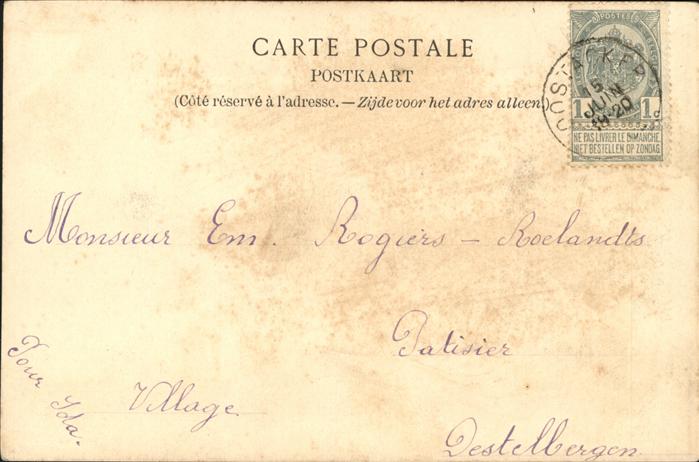 CARTE POSTALE
POSTKAART
(Côté réservé à l'adresse. — Zijde voor het adres alleen.)
POSTES
1 1c
NE PAS LIVRER LE DIMANCHE
NIET BESTELLEN OP ZONDAG
OOSTACKER
5
JUIN
18-20
Monsieur Em. Rogiers - Roelandts
Patisier
Village
Destelbergen
Pour Ida.